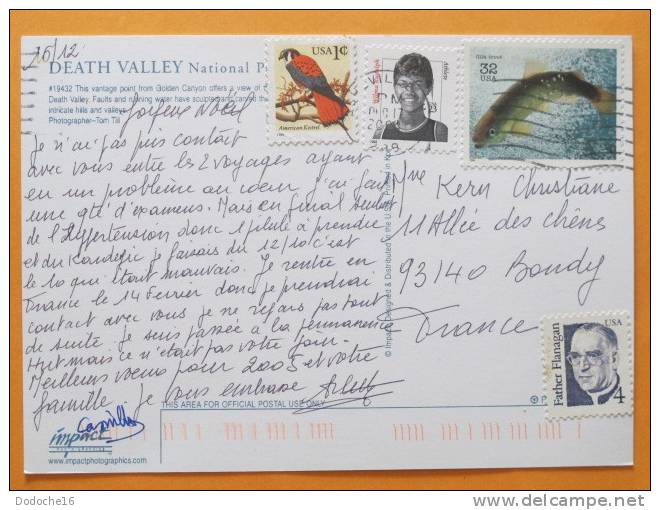 15/12
DEATH VALLEY National Pa
#19432 This vantage point from Golden Canyon offers a view of
Death Valley. Faults and running water have sculpted and carved the
intricate hills and valleys
Photographer-Tom Till
Joyeux Noël
Je n'ai pas pris contact
avec vous entre les 2 voyages ayant
eu un problème au coeur j'ai fait
une qté d'examens. Mais en final seulent
de l'Hypertension donc 1 pilule à prendre
et du Kardégic je faisais du 12/10 c'est
le 10 qui était mauvais. Je rentre en
France le 14 Février donc je prendrai
contact avec vous je ne repars pas tout
de suite. Je suis passée à la permanence
Hyet mais ce n'était pas votre jour.
Meilleurs voeux pour 2005 et votre
famille je vous embrasse
Camille
impact
www.impactphotographics.com
THIS AREA FOR OFFICIAL POSTAL USE ONLY
© Impact Designed & Distributed in the U.S.A. Printed in Ko
USA 1¢
American Kestrel
Wilma Rudolph
Athlete
Gila trout
32
USA
VILLE
PM
Mme Kern Christiane
11 Allée des chênes
93140 Bondy
France
Father Flanagan
USA
4
Dodoche16
delcampe.net